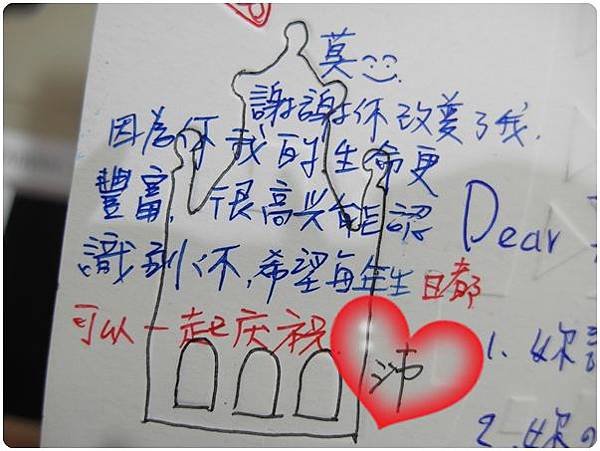 莫
謝謝你改变了我.
因為你我的生命更
豐富,很高兴能認
識到你,希望每年生日都
可以一起庆祝
沛
Dear
1. 妳
2. 妳